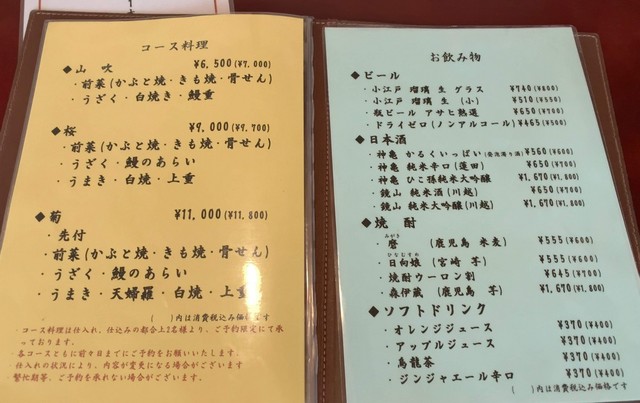 コース料理
◆山　吹　¥6,500(¥7,000)
・前菜(かぶと焼・きも焼・骨せん)
・うざく・白焼き・鰻重
◆桜　¥9,000(¥9,700)
・前菜(かぶと焼・きも焼・骨せん)
・うざく・鰻のあらい
・うまき・白焼・上重
◆菊　¥11,000(¥11,800)
・先付
・前菜(かぶと焼・きも焼・骨せん)
・うざく・鰻のあらい
・うまき・天婦羅・白焼・上重
(　)内は消費税込み価格です
・コース料理は仕入れ、仕込みの都合上2名様より、ご予約限定にて承
っております。
・各コースともに前々日までにご予約をお願いいたします。
・仕入れの状況により、内容が変更になる場合がございます
・繁忙期等、ご予約を承れない場合がございます。
お飲み物
◆ビール
・小江戸 瑠璃 生 グラス　¥740(¥800)
・小江戸 瑠璃 生 (小)　¥510(¥550)
・瓶ビール アサヒ熟選　¥650(¥700)
・ドライゼロ(ノンアルコール)　¥465(¥500)
◆日本酒
・神亀 かるくいっぱい(発泡濁り酒)　¥560(¥600)
・神亀 純米辛口(蓮田)　¥650(¥700)
・神亀 ひこ孫純米大吟醸　¥1,670(¥1,800)
・鏡山 純米酒(川越)　¥650(¥700)
・鏡山 純米大吟醸(川越)　¥1,670(¥1,800)
◆焼　酎
みがき
・磨　(鹿児島 米麦)　¥555(¥600)
ひなむすめ
・日向娘　(宮崎 芋)　¥555(¥600)
・焼酎ウーロン割　¥645(¥700)
・森伊蔵　(鹿児島 芋)　¥1,670(¥1,800)
◆ソフトドリンク
・オレンジジュース　¥370(¥400)
・アップルジュース　¥370(¥400)
・烏龍茶　¥370(¥400)
・ジンジャエール辛口　¥370(¥400)
(　)内は消費税込み価格です